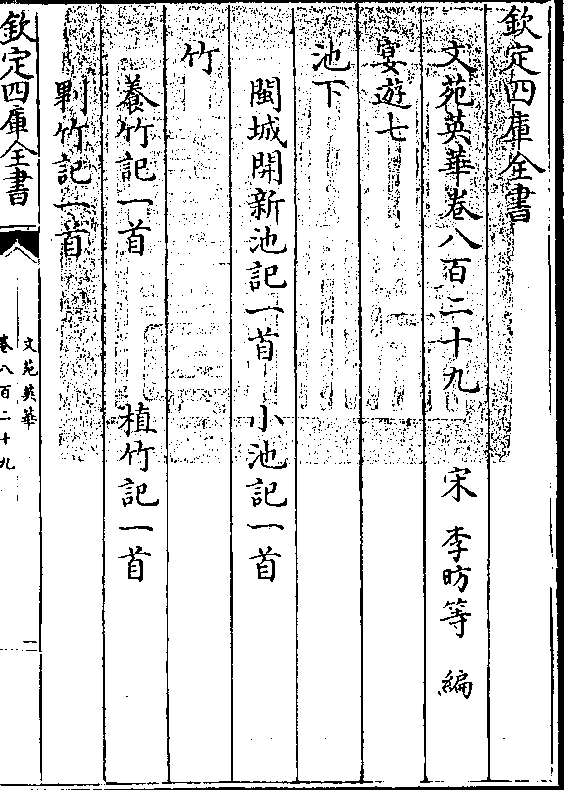 欽定四庫全書
文苑英華卷八百二十九
宋 李昉等 編
宴遊七
池下
閩城開新池記一首 小池記一首
竹
養竹記一首 植竹記一首
剿竹記一首
欽定四庫全書
文苑英華
卷八百二十九
一